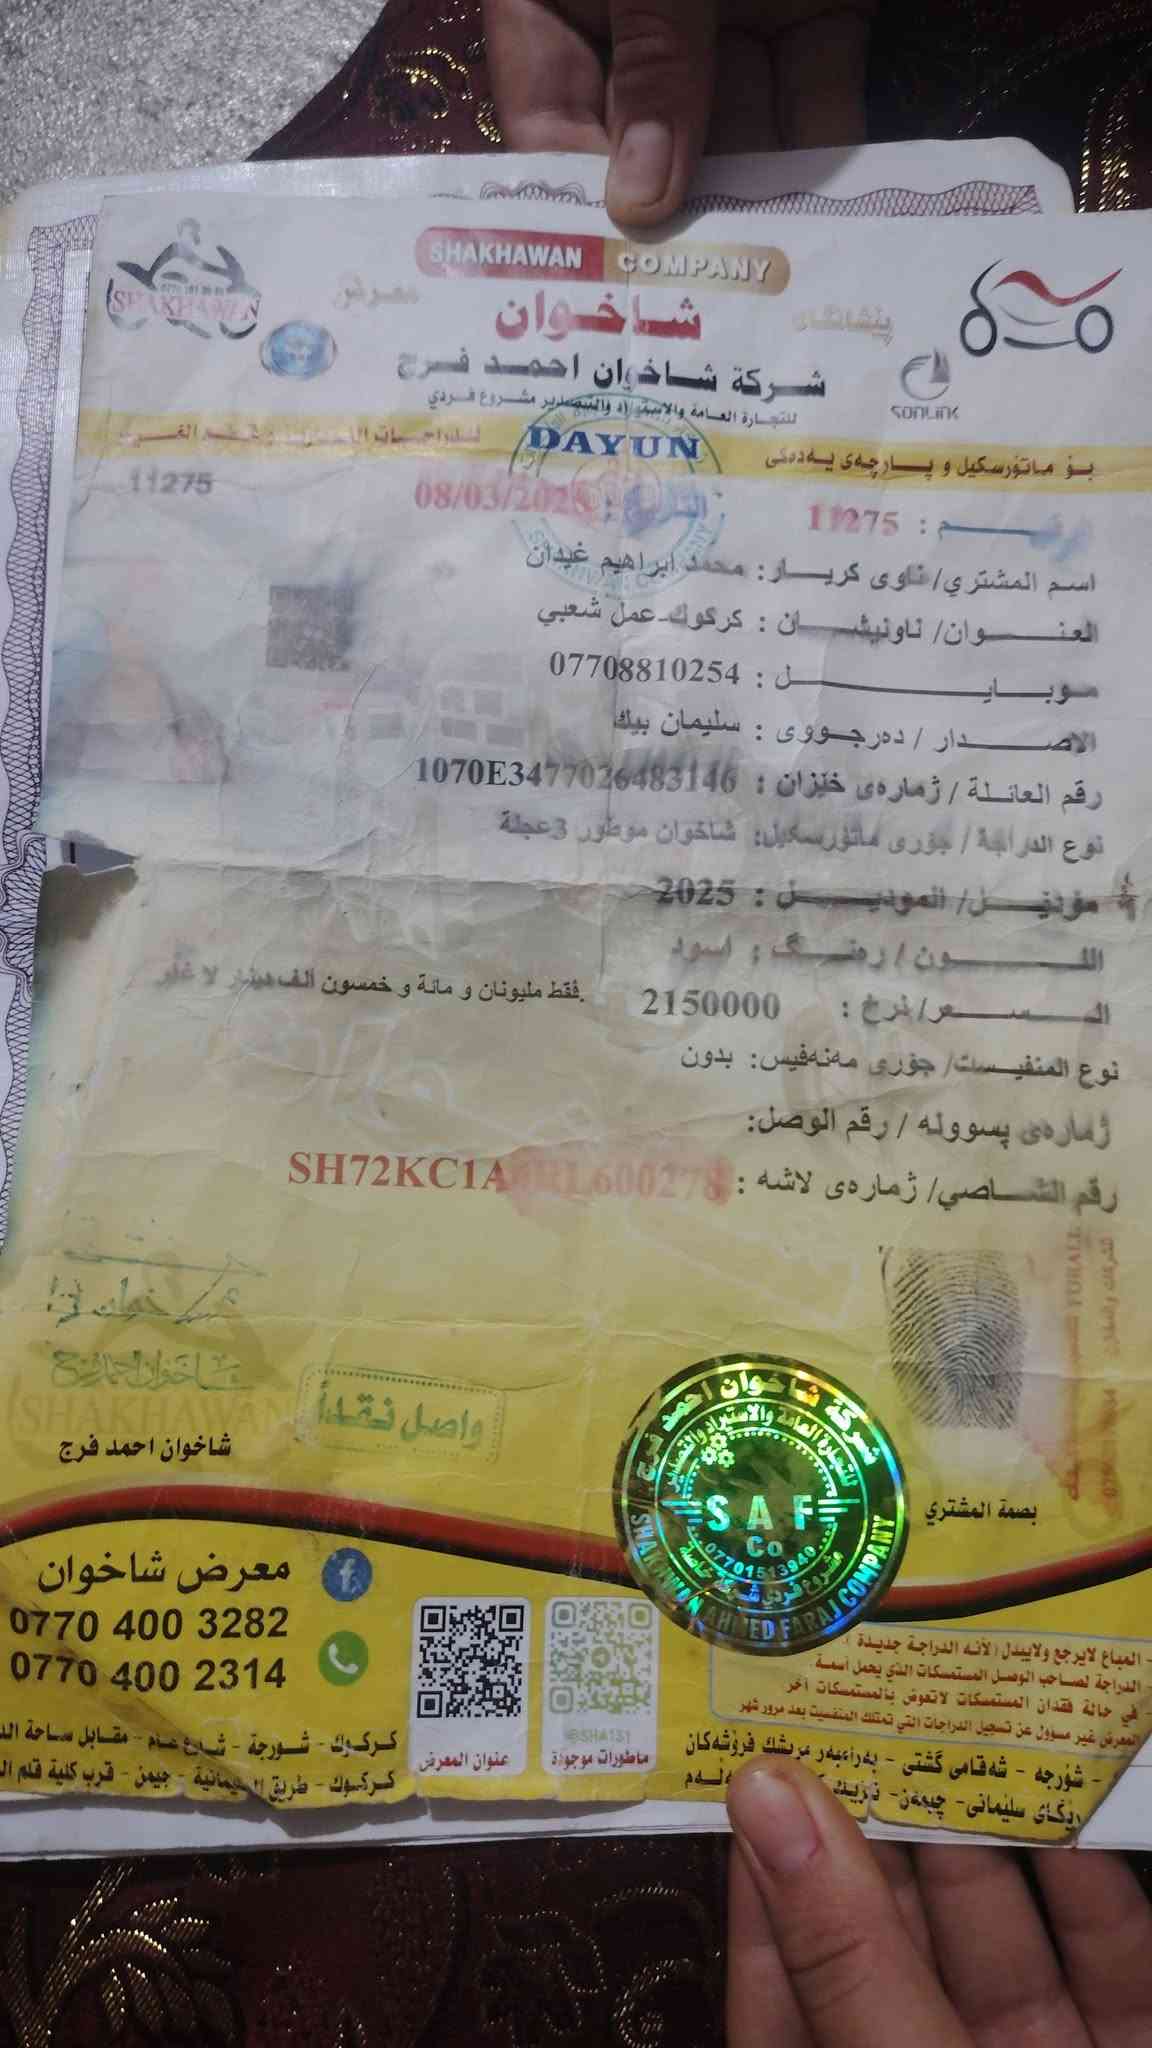 SHAKHAWAN COMPANY
SHAKHAWAN
معرض
شاخوان
پێشانگای
شركة شاخوان احمد فرج
SONLINK
للتجارة العامة والاستيراد والتصدير مشروع فردي
DAYUN
بۆ ماتۆرسكيل و پارچەی یەدەکی
11275
التاريخ : 08/03/2025
رقم : 11275
اسم المشتري/ ناوى كريار: محمد ابراهيم غيدان
العنوان/ ناونيشان : كركوك-عمل شعبي
موبايل : 07708810254
الاصدار / دەرجووى : سليمان بيك
رقم العائلة / ژمارەى خێزان : 1070E3477026483146
نوع الدراجة / جۆرى ماتۆرسكيل: شاخوان موطور 3عجلة
مۆدێل/ الموديل : 2025
اللون / رەنگ : اسود
السعر/ نرخ : 2150000 فقط مليونان و مائة و خمسون الف دينار لا غير.
نوع المنفيست/ جۆرى مەنەفيس: بدون
ژمارەى پسوولە / رقم الوصل:
رقم الشاصي/ ژمارەى لاشە : SH72KC1A
600278
شاخوان احمد فرج
SHAKHAWAN
واصل نقداً
شاخوان احمد فرج
شركة شاخوان احمد فرج
للتجارة العامة والاستيراد والتصدير
SAF
Co
07701513940
SHAKHWAN AHMED FARAJ COMPANY
بصمة المشتري
معرض شاخوان
0770 400 3282
0770 400 2314
عنوان المعرض
@SHA131
ماطورات موجودة
- المباع لايرجع ولايبدل لأنه الدراجة جديدة
- الدراجة لصاحب الوصل المستمسكات الذي يحمل أسمه
- في حالة فقدان المستمسكات لاتعوض بالمستمسكات أخر
المعرض غير مسؤول عن تسجيل الدراجات التي تمتلك المنفيست بعد مرور شهر
كركوك - شورجة - شارع عام - مقابل ساحة
كركوك - طريق السليمانية - جيمن - قرب كلية قلم
- شۆرجە - شەقامى گشتى - بەرامبەر مريشك فرۆشەكان
ريگاى سليمانى- چيمەن-